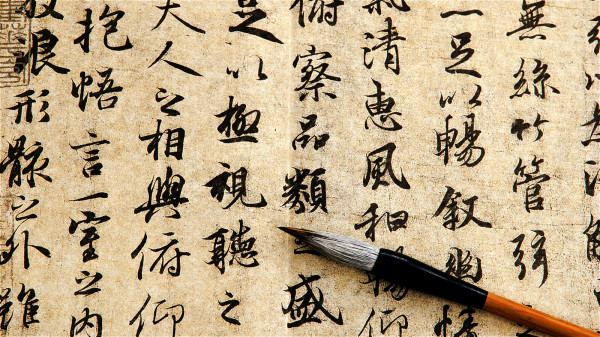 無絲竹管弦
足以暢叙幽情
氣清惠風和暢仰
俯察品類之盛
足以極視聽之
夫人之相與俯仰
抱悟言一室之內
放浪形骸之外雖